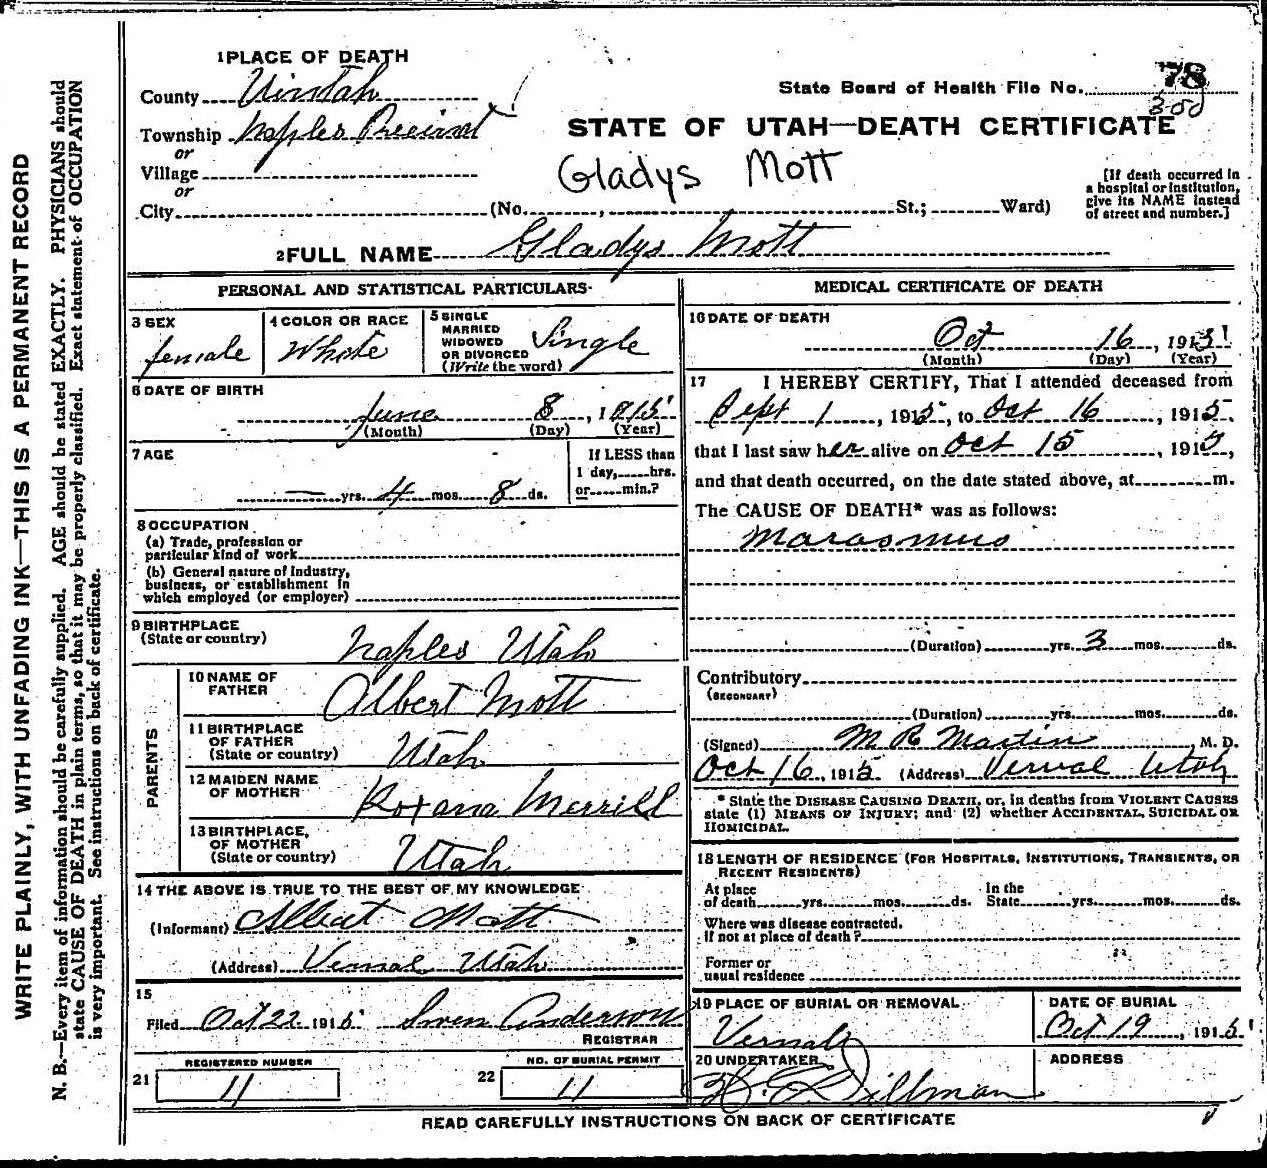 WRITE PLAINLY, WITH UNFADING INK—THIS IS A PERMANENT RECORD
N. B.—Every item of information should be carefully supplied. AGE should be stated EXACTLY. PHYSICIANS should
state CAUSE OF DEATH in plain terms, so that it may be properly classified. Exact statement of OCCUPATION
is very important. See instructions on back of certificate.
1 PLACE OF DEATH
County Uintah
Township Naples Precinct
or
Village
or
City (No. , St.; Ward)
State Board of Health File No. 78
350
STATE OF UTAH—DEATH CERTIFICATE
Gladys Mott
[If death occurred in
a hospital or institution,
give its NAME instead
of street and number.]
2 FULL NAME Gladys Mott
PERSONAL AND STATISTICAL PARTICULARS
3 SEX
female
4 COLOR OR RACE
White
5 SINGLE
MARRIED
WIDOWED
OR DIVORCED
(Write the word)
Single
6 DATE OF BIRTH
June 8, 1915
(Month) (Day) (Year)
7 AGE
— yrs. 4 mos. 8 ds.
If LESS than
1 day, hrs.
or min.?
8 OCCUPATION
(a) Trade, profession or
particular kind of work
(b) General nature of industry,
business, or establishment in
which employed (or employer)
9 BIRTHPLACE
(State or country)
Naples Utah
PARENTS
10 NAME OF
FATHER
Albert Mott
11 BIRTHPLACE
OF FATHER
(State or country)
Utah
12 MAIDEN NAME
OF MOTHER
Roxana Merrill
13 BIRTHPLACE,
OF MOTHER
(State or country)
Utah
14 THE ABOVE IS TRUE TO THE BEST OF MY KNOWLEDGE
(Informant) Albert Mott
(Address) Vernal Utah
15
Filed Oct 22 1915 Swen Anderson
REGISTRAR
REGISTERED NUMBER
21 11
NO. OF BURIAL PERMIT
22 11
MEDICAL CERTIFICATE OF DEATH
16 DATE OF DEATH
Oct 16, 1915
(Month) (Day) (Year)
17 I HEREBY CERTIFY, That I attended deceased from
Sept 1, 1915, to Oct 16, 1915.
that I last saw her alive on Oct 15, 1915,
and that death occurred, on the date stated above, at m.
The CAUSE OF DEATH* was as follows:
Marasmus
(Duration) yrs. 3 mos. ds.
Contributory
(SECONDARY)
(Duration) yrs. mos. ds.
(Signed) M R Martin M. D.
Oct 16, 1915. (Address) Vernal Utah
* State the DISEASE CAUSING DEATH, or, in deaths from VIOLENT CAUSES
state (1) MEANS OF INJURY; and (2) whether ACCIDENTAL, SUICIDAL OR
HOMICIDAL.
18 LENGTH OF RESIDENCE (FOR HOSPITALS, INSTITUTIONS, TRANSIENTS, OR
RECENT RESIDENTS)
At place
of death yrs. mos. ds.
In the
State yrs. mos. ds.
Where was disease contracted,
If not at place of death?
Former or
usual residence
19 PLACE OF BURIAL OR REMOVAL
Vernal
DATE OF BURIAL
Oct 19, 1915
20 UNDERTAKER
Dillman
ADDRESS
READ CAREFULLY INSTRUCTIONS ON BACK OF CERTIFICATE